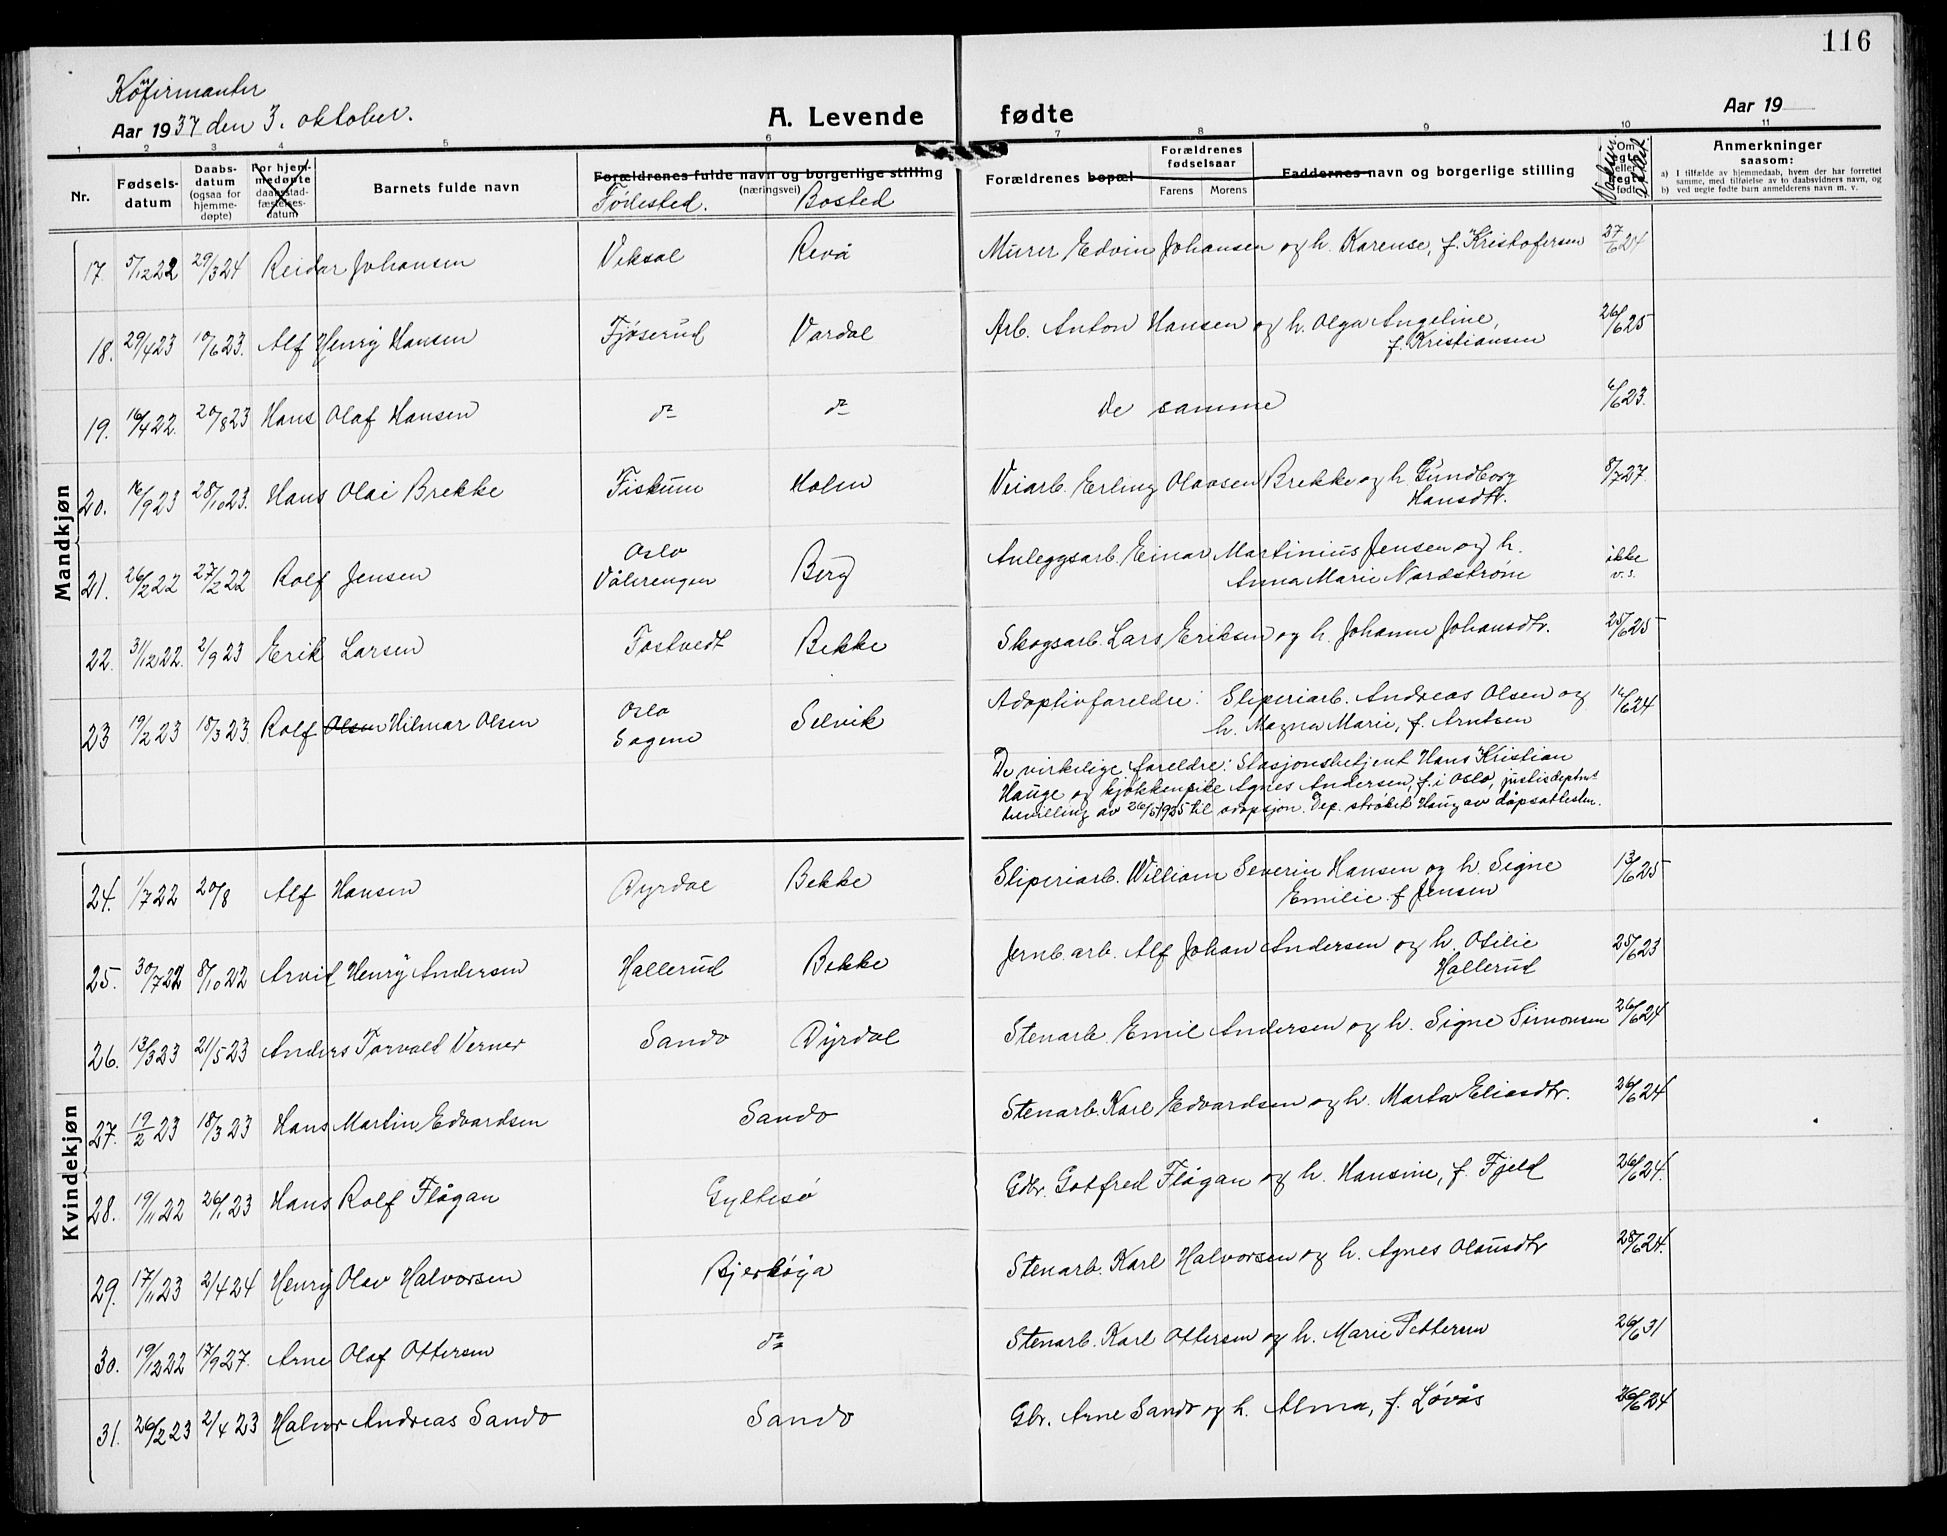 116
Konfirmanter
Aar 1937 den 3. oktober.
A. Levende fødte
Aar 19
1 2 3 4 5 6 7 8 9 10 11
Nr.
Fødsels-
datum
Daabs-
datum
(ogsaa for
hjemme-
døpte)
For hjem-
medøpte
daabsstad-
fæstelses-
datum
Barnets fulde navn
Forældrenes fulde navn og borgerlige stilling
(næringsvei)
Födested. Bosted
Forældrenes bopæl
Forældrenes
fødselsaar
Farens Morens
Faddernes navn og borgerlige stilling
Om
egte
eller
uegte
født
Anmerkninger
saasom:
a) I tilfælde av hjemmedaab, hvem der har forrettet
samme, med tilføielse av to daabsvidners navn, og
b) ved uegte fødte barn anmelderens navn m. v.
Mandkjøn
17. 5/12 22 29/3 24 Reidar Johansen Viksal Revå Murer Edvin Johansen og h. Karense, f. Kristofersen 27/6 24
18. 29/4 23 10/6 23. Alf Henry Hansen Fjøserud Vardal Arb. Anton Hansen og h. Olga Angeline,
f. Kristiansen 26/6 25
19. 16/4 22. 20/8 23 Hans Olaf Hansen do do De samme 6/6 23.
20. 16/9 23 28/10 23. Hans Olai Brekke Fiskum Holm Veiarb. Erling Olavsen Brekke og h. Gundborg
Hansdtr. 8/7 27.
21. 26/2 22 27/2 22 Rolf Jensen Oslo
Vålerengen Berg Anleggsarb. Einar Martinius Jensen og h.
Anna Marie Nordstrøm ikke
v. s.
22. 31/12 22. 2/9 23 Erik Larsen Tostvedt Bekke Skogsarb. Lars Eriksen og h. Johanne Johansdtr. 25/6 25
23 19/2 23 18/3 23 Rolf Olsen Hilmar Olsen Oslo
Sagene Selvik Adoptivforeldre: Sliperiarb. Andreas Olsen og
h. Magna Marie, f. Arntsen 16/6 24
De virkelige foreldre: Stasjonsbetjent Hans Kristian
Hauge og kjøkkenpike Agnes Andersen, f. i Oslo, justisdeptmt
bevilling av 26/5 1925 til adopsjon. Dep. strøket Haug av dåpsattesten.
Kvindekjøn
24. 1/7 22 20/8 Alf Hansen Dyrdal Bekke Sliperiarb. William Severin Hansen og h. Signe
Emilie f. Jensen 13/6 25
25. 30/7 22 8/10 22 Arvid Henry Andersen Hallerud Bekke Jernb. arb. Alf Johan Andersen og h. Otilie
Hallerud 25/6 23
26. 13/3 23 21/5 23 Anders Torvald Verner Sando Dyrdal Stenarb. Emil Andersen og h. Signe Simonsen 26/6 24
27. 19/2 23 18/3 23 Hans Martin Edvardsen Sando Stenarb. Karl Edvardsen og h. Marta Eliasdtr. 26/6 24
28. 19/11 22 26/1 23 Hans Rolf Flågan Gyltesø Gdbr. Gotfred Flågan og h. Hansine, f. Fjeld 26/6 24.
29. 17/11 23 2/4 24 Henry Olav Halvorsen Bjerkøya Stenarb. Karl Halvorsen og h. Agnes Olausdtr 28/6 24.
30. 19/12 22 17/9 27. Arne Olaf Ottersen do Stenarb. Karl Ottersen og h. Marie Pettersen 26/6 31
31. 26/2 23 2/4 23 Halvor Andreas Sando Sando Gbr. Arne Sando og h. Alma, f. Løvås 26/6 24